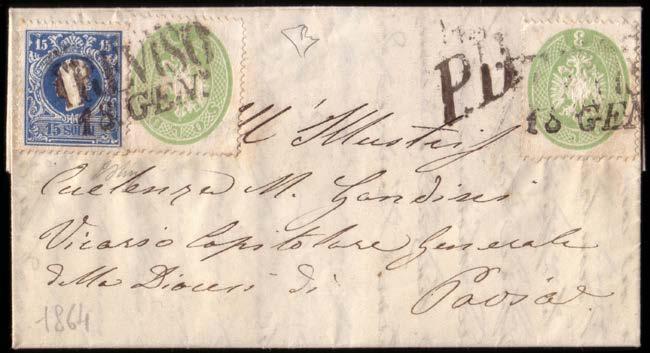 15 15
15 SOL
TREVISO
18 GEN.
P.D.
3
18 GEN
All' Illustris
Eccellenza M. Gandini
Vicario Capitolare Generale
della Diocesi di
Pavia
1864